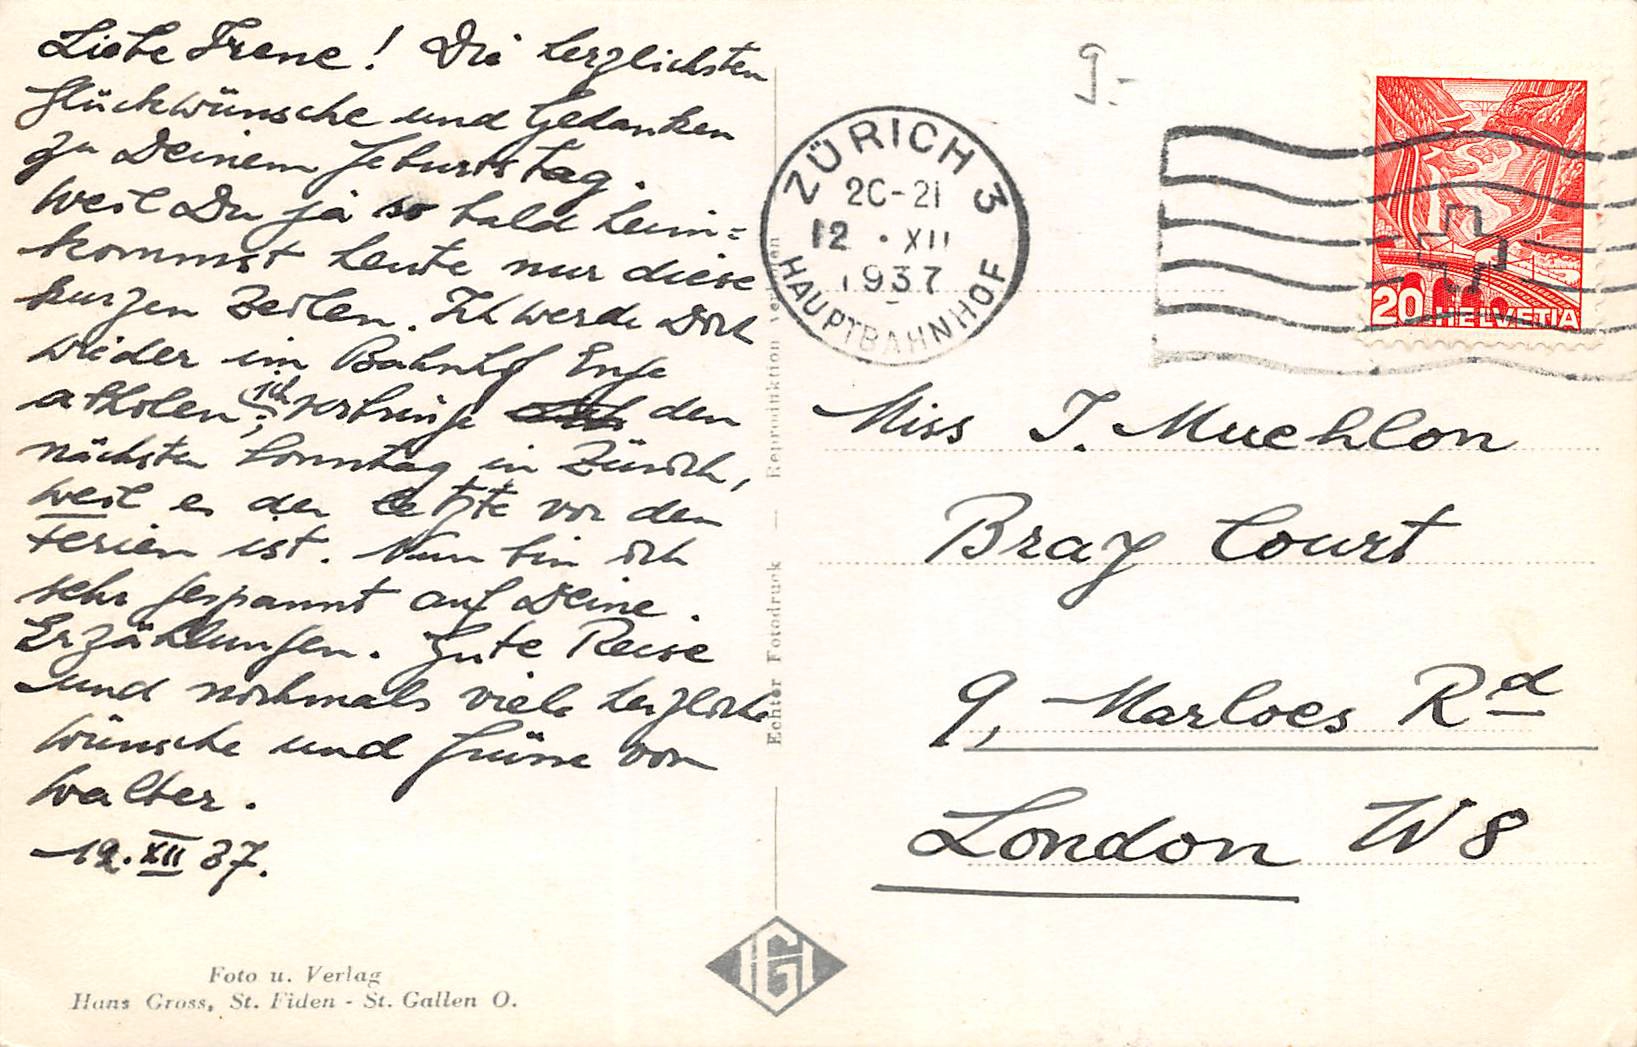 Liebe Irene! Die herzlichsten
Glückwünsche und Gedanken
zu Deinem Geburtstag.
Weil Du ja so bald heim=
kommst heute nur diese
kurzen Zeilen. Ich werde Dich
wieder im Bahnhf Enge
abholen, ich verbringe den
nächsten Sonntag in Zürich,
weil es der letzte vor den
Ferien ist. Nun bin ich
sehr gespannt auf Deine
Erzählungen. Gute Reise
und nochmals viele herzliche
Wünsche und Grüsse von
Walter.
12. XII 37.
Foto u. Verlag
Hans Gross, St. Fiden - St. Gallen O.
Echter Fotodruck — Reproduktion verboten
IGI
9.-
ZÜRICH 3
20-21
12 . XII
1937
HAUPTBAHNHOF
20 HELVETIA
Miss I. Muehlon
Bray Court
9, Marloes Rd
London W8